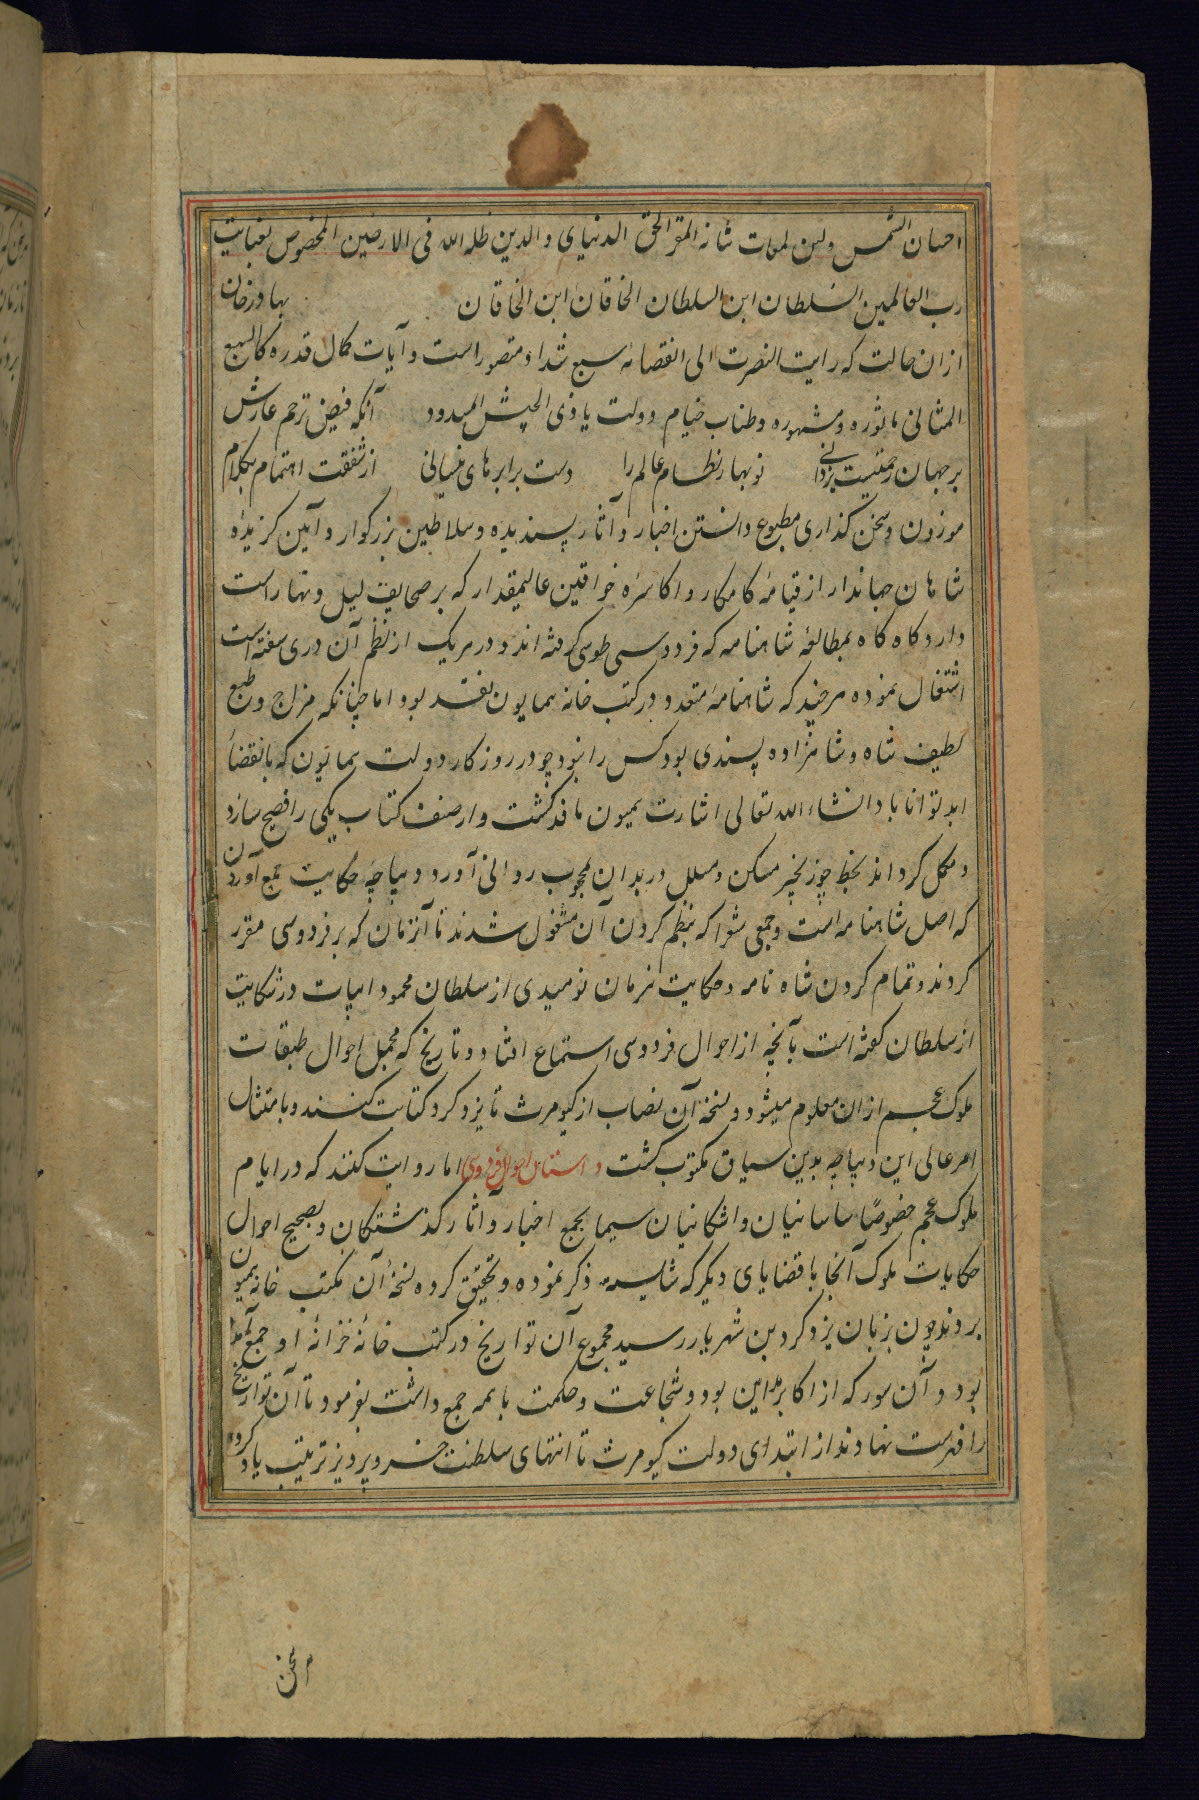 احسان الشمس ولمن لمعات شانه المقر الحق الدنیای والدین ظله الله فی الارضین المخصوص بعنایت
رب العالمین السلطان ابن السلطان الخاقان ابن الخاقان بهادرخان
از ان حالت که رایت النصرت الی انقضائه سبع شداد متصور است و آیات کمال قدره کالسبع
المثانی ماثوره و مشهوره و طناب خیام دولت یا ذی الجیش الممدود آنکه فیض ترحم عارش
بر جهان رحمتیست یزدانی نوبهار نظام عالم را دست برابر های نیسانی از شفقت اهتمام بکلام
موزون و سخن کذاری مطبوع دانستن اخبار و آثار پسندیده و سلاطین بزرکوار و آیین کزیده
شاهان جهاندار از قیاصره کامکار و اکاسره خواقین عالیمقدار که بر صحایف لیل و نهار است
دارد کاه کاه بمطالعه شاهنامه که فردوسی طوسی کفته اند و در هریک از نظم آن دری سفته است
اشتغال نموده هرچند که شاهنامه متعدد در کتب خانه همایون نفتد بود اما چنانکه مزاج و طبع
لطیف شاه و شاهزاده پسندی بود کس را نبود چو در روزکار دولت همایون که بانقضا
ابد توانا باد انشاء الله تعالی اشارت میمون نافذ کشت و از صنف کتاب یکی را فصیح سازد
و مکمل کرداند بخط چو زنجیر ممکن و مسلسل در بدان محجوب روانی آورد دیباچه حکایت جمع آوردن
که اصل شاهنامه است و جمعی شعرا که بنظم کردن آن مشغول شدند تا آنزمان که بر فردوسی مقرر
کردند و تمام کردن شاه نامه و حکایت نومیدی از سلطان محمود ابیات در شکایت
از سلطان کفته است بآنچه از احوال فردوسی استماع افتاد و تاریخ که مجمل احوال طبقات
ملوک عجم از ان معلوم میشود و نسخه آن نصاب از کیومرث تا یزدکرد کتابت کنند و بامتثال
امر عالی این دیباچه بدین سیاق مکتوب کشت داستان احوال فردوسی اما روایت کنند که در ایام
ملوک عجم خصوصا ساسانیان و اشکانیان سیما بجمع اخبار و آثار کذشتکان و تصحیح احوال
حکایات ملوک آنجا با قضایای دیکر که شایسته ذکر نموده و تحقیق کرده نسخه آن بکتب خانه همیون
بردند چون بزبان یزدکرد بن شهریار رسید مجموع آن تواریخ در کتب خانه خزانه او جمع آمد
بود و آن سور که از اکابر مداین بود و شجاعت و حکمت با همه جمع داشت بفرمود تا آن تواریخ
را فهرست نهادند از ابتدای دولت کیومرث تا انتهای سلطنت خسرو پرویز ترتیب یاد کرده